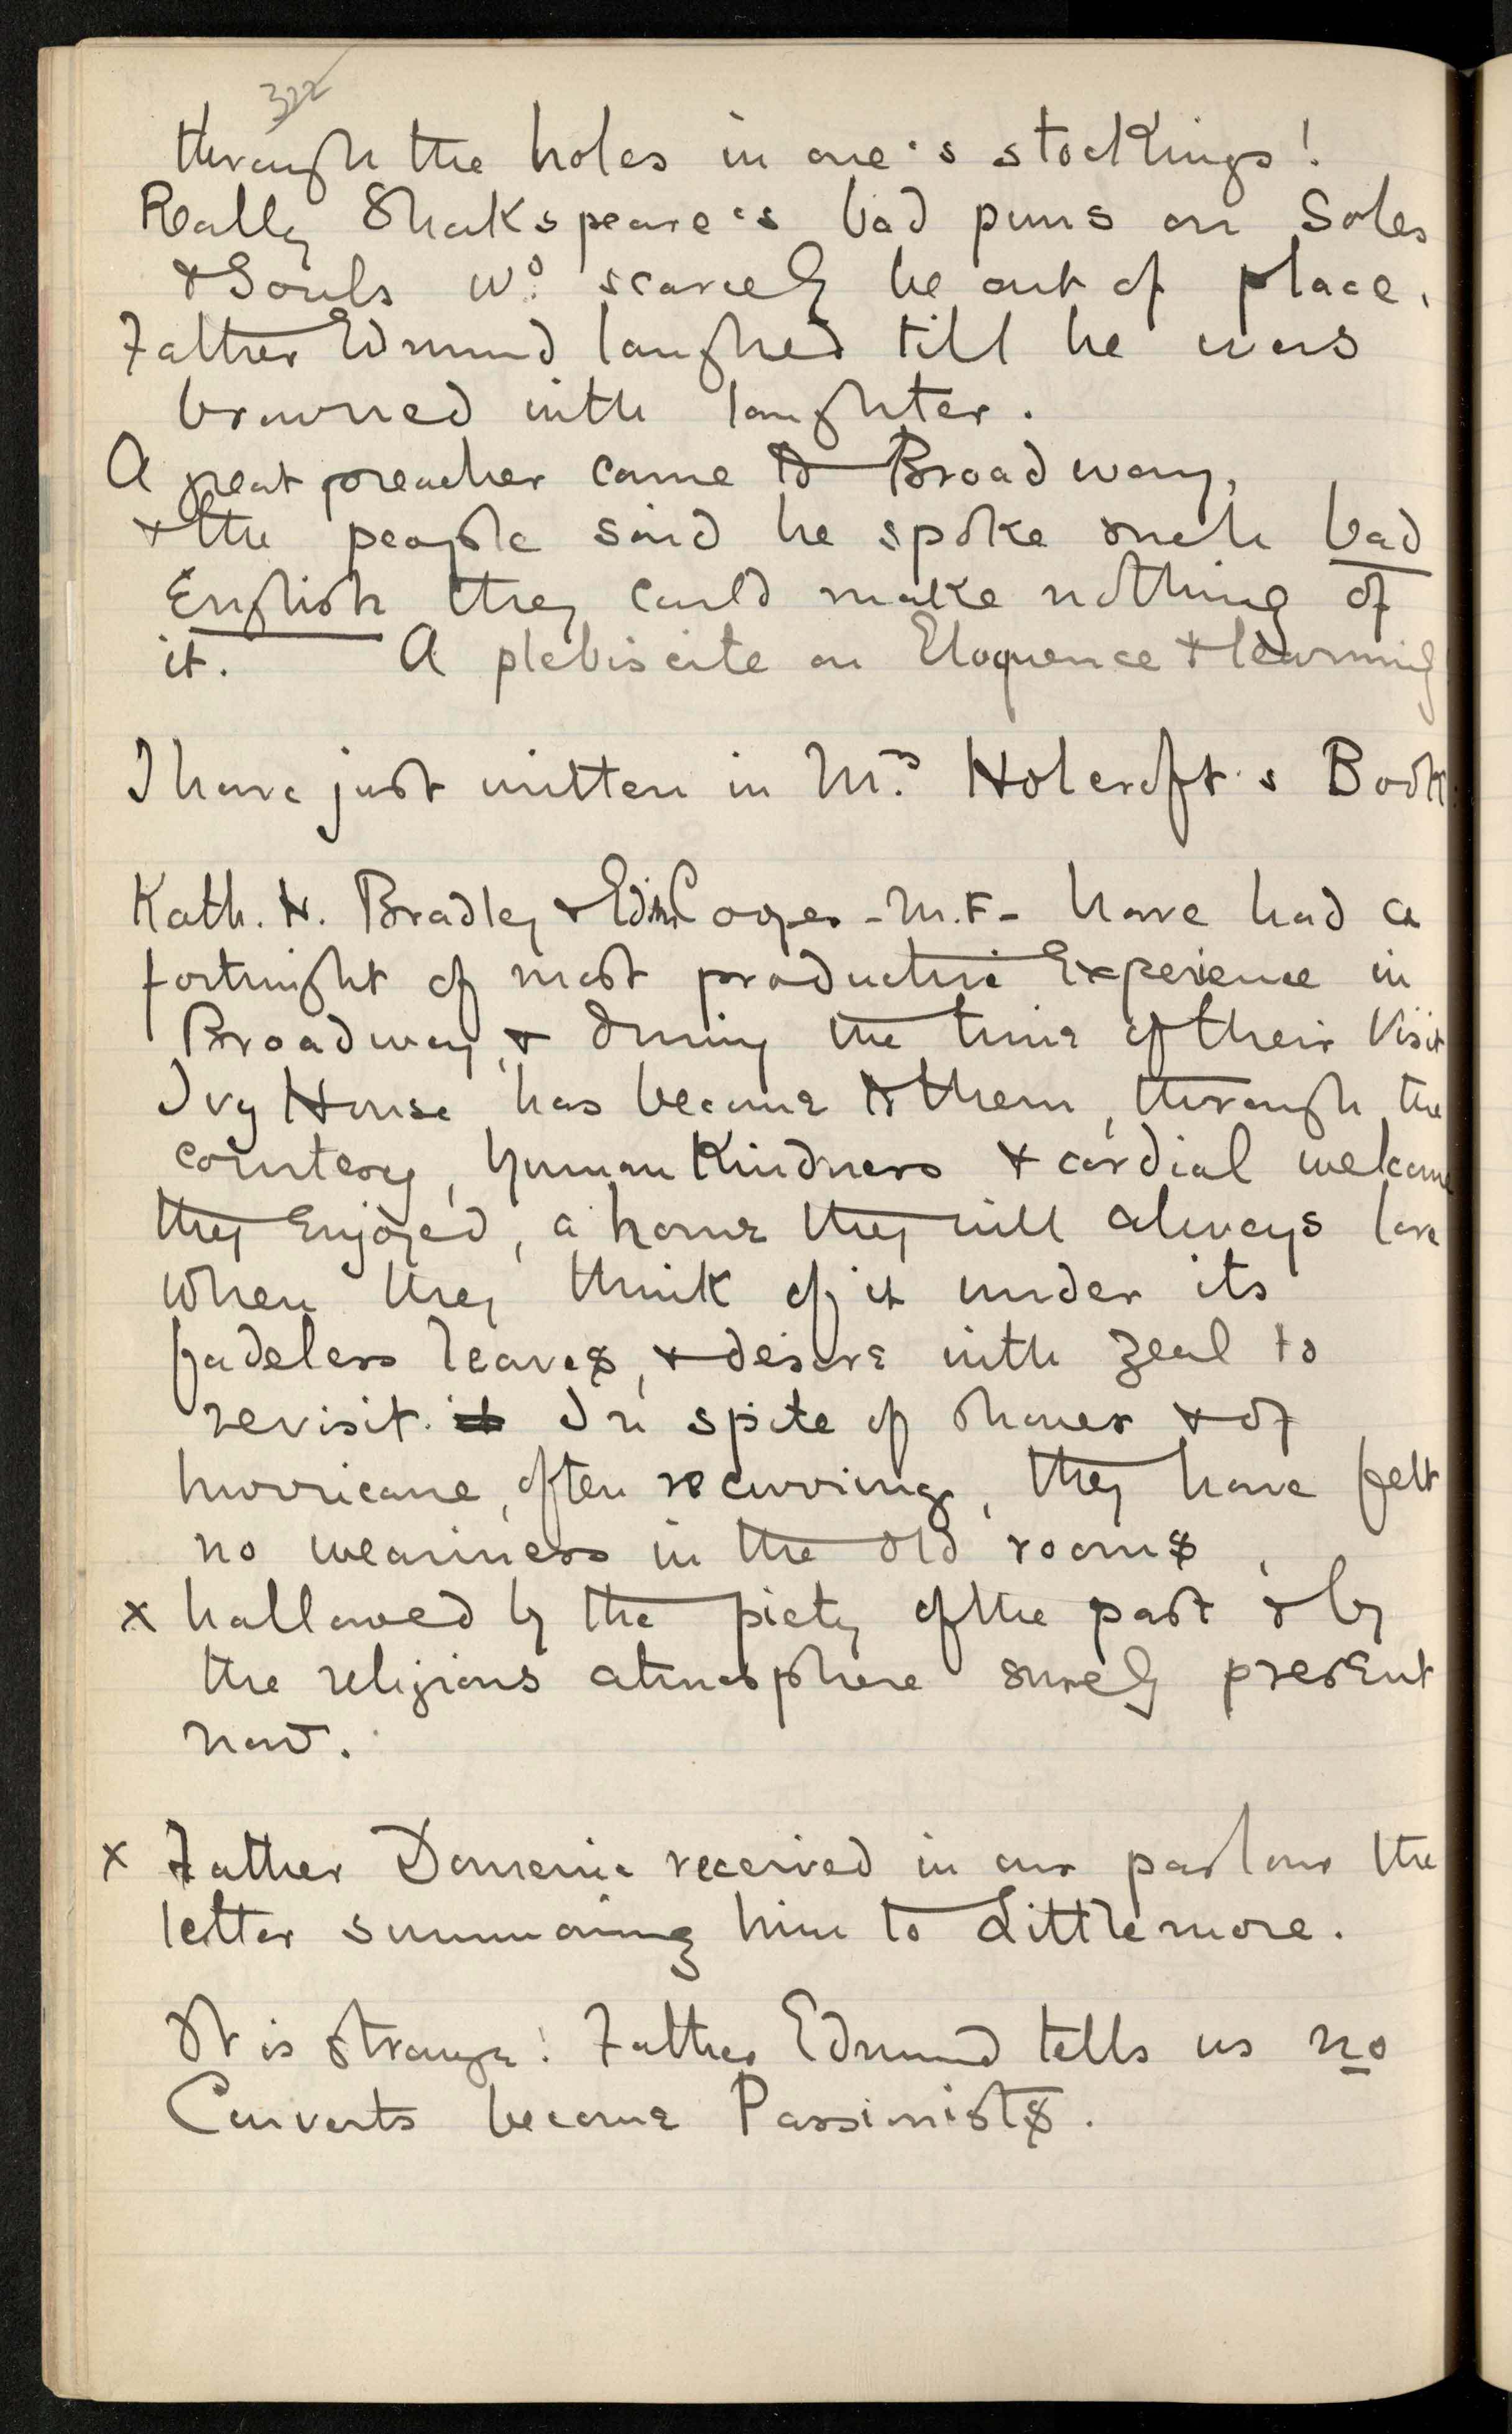 322
through the holes in one's stockings!
Really Shakspeare's bad puns on Soles
& Souls wd. scarcely be out of place.
Father Edmund laughed till he was
browned with laughter.
A great preacher came to Broadway,
& the people said he spoke such bad
English they could make nothing of
it. A plebiscite on Eloquence & learning
I have just written in Mrs. Holcroft's Book
Kath. H. Bradley & Edith Cooper - M.F - have had a
fortnight of most productive Experience in
Broadway, & during the time of their Visit
Ivy House has become to them, through the
courtesy, human Kindness & cordial welcome
they Enjoyed, a home they will always love
when they think of it under its
fadeless leaves, & desire with zeal to
revisit. In spite of shower & of
hurricane, often recurring, they have felt
no weariness in the old rooms,
x hallowed by the piety of the past & by
the religious atmosphere surely present
now.
x Father Domenic received in our parlour the
letter summoning him to Littlemore.
It is strange! Father Edmund tells us no
Converts become Passionists.